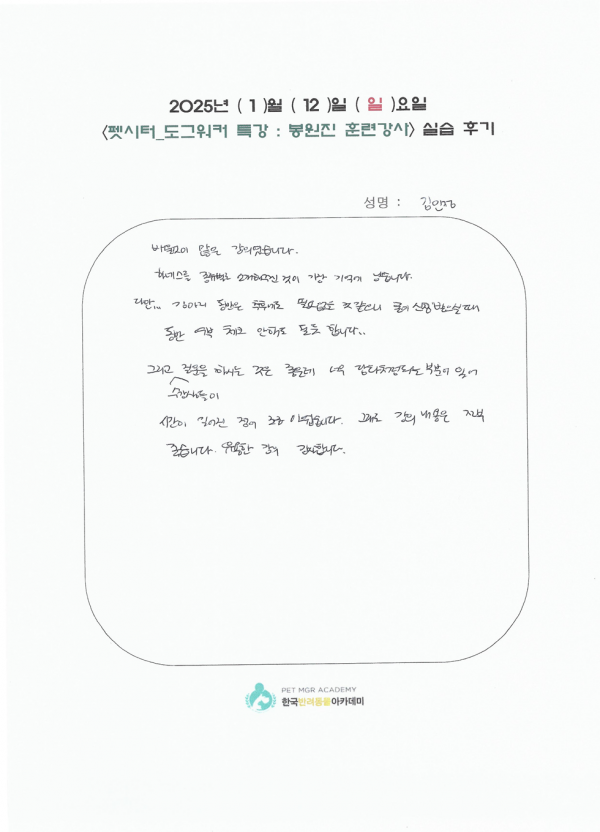 2025년 ( 1 )월 ( 12 )일 ( 일 )요일
<펫시터_도그워커 특강 : 봉원진 훈련강사> 실습 후기
성명 :
많은 강의였습니다.
하네스를 종류별로 소개해주신 것이 가장 기억에 남습니다.
다만,, 강아지 동반은 같으니 신청 받으실 때
동반 여부 체크 안해도 될듯 합니다..
그리고 질문을 하시는 것은 좋은데 너무 부분이 있어
수강생들이
시간이 길어진 점이 조금 아쉽습니다. 그래도 강의 내용은 전부
좋습니다. 유용한 강의 감사합니다.
PET MGR ACADEMY
한국반려동물아카데미